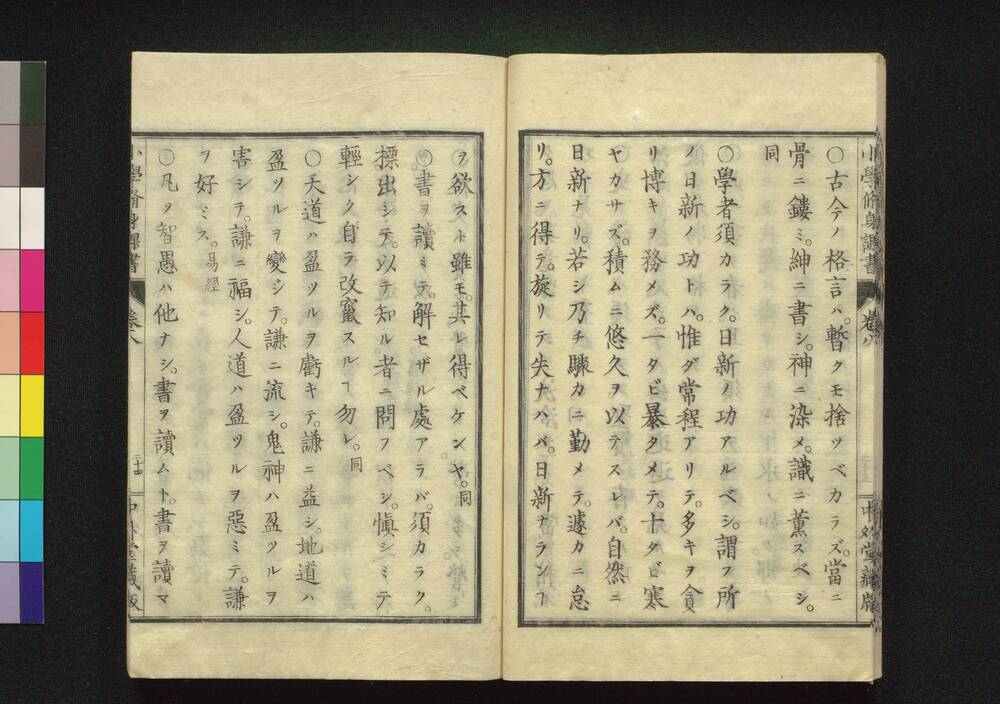 小學修身課書
卷八
中外堂藏版
○古今ノ格言ハ。暫クモ捨ツベカラズ。當ニ
骨ニ鏤ミ。紳ニ書シ。神ニ染メ。識ニ薫スベシ。
同
○學者須カラク。日新ノ功アルベシ。謂フ所
ノ日新ノ功トハ。惟ダ常程アリテ。多キヲ貪
リ博キヲ務メズ。一タビ暴タメテ。十タビ寒
ヤカサズ。積ムニ悠久ヲ以テスレバ。自然ニ
日新ナリ。若シ乃チ驟カニ勤メテ。遽カニ怠
リ。方ニ得テ。旋リテ失ナハバ。日新ナランヿ
ヲ欲スト雖モ。其レ得ベケンヤ。同
○書ヲ讀ミテ。解セザル處アラバ。須カラク。
摽出シテ。以テ知ル者ニ問フベシ。愼シミテ
輕シク自テ改竄スルヿ勿レ。同
○天道ハ盈ツルヲ虧キテ。謙ニ益シ。地道ハ
盈ツルヲ變シテ。謙ニ流シ。鬼神ハ盈ツルヲ
害シテ。謙ニ福シ。人道ハ盈ツルヲ惡ミテ。謙
ヲ好ミス。易經
○凡ソ智愚ハ他ナシ。書ヲ讀ムト。書ヲ讀マ
小學脩身課書
卷八
二十四
中外堂藏版